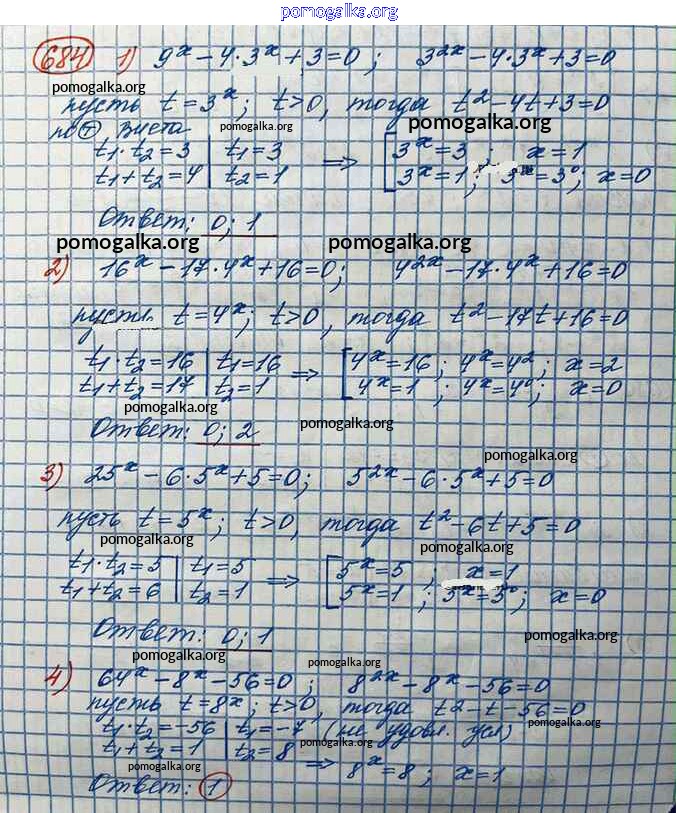 pomogalka.org
684 1) 9^x - 4·3^x + 3 = 0; 3^2x - 4·3^x + 3 = 0
pomogalka.org
пусть t = 3^x; t > 0, тогда t² - 4t + 3 = 0
по т. Виета pomogalka.org pomogalka.org
t₁·t₂ = 3 | t₁ = 3 ⇒ [ 3^x = 3; x = 1
t₁ + t₂ = 4 | t₂ = 1 3^x = 1; 3^x = 3⁰; x = 0
Ответ: 0; 1
pomogalka.org pomogalka.org
2) 16^x - 17·4^x + 16 = 0; 4^2x - 17·4^x + 16 = 0
пусть t = 4^x; t > 0, тогда t² - 17t + 16 = 0
t₁·t₂ = 16 | t₁ = 16 ⇒ [ 4^x = 16; 4^x = 4²; x = 2
t₁ + t₂ = 17 | t₂ = 1 4^x = 1; 4^x = 4⁰; x = 0
pomogalka.org
Ответ: 0; 2 pomogalka.org
pomogalka.org
3) 25^x - 6·5^x + 5 = 0; 5^2x - 6·5^x + 5 = 0
пусть t = 5^x; t > 0, тогда t² - 6t + 5 = 0
pomogalka.org pomogalka.org
t₁·t₂ = 5 | t₁ = 5 ⇒ [ 5^x = 5; x = 1
t₁ + t₂ = 6 | t₂ = 1 5^x = 1; 5^x = 5⁰; x = 0
Ответ: 0; 1 pomogalka.org
pomogalka.org
4) 64^x - 8^x - 56 = 0; 8^2x - 8^x - 56 = 0
пусть t = 8^x; t > 0, тогда t² - t - 56 = 0
t₁·t₂ = -56 | t₁ = -7 (не удовл. усл) pomogalka.org
t₁ + t₂ = 1 | t₂ = 8 pomogalka.org
pomogalka.org ⇒ 8^x = 8; x = 1
Ответ: 1 pomogalka.org